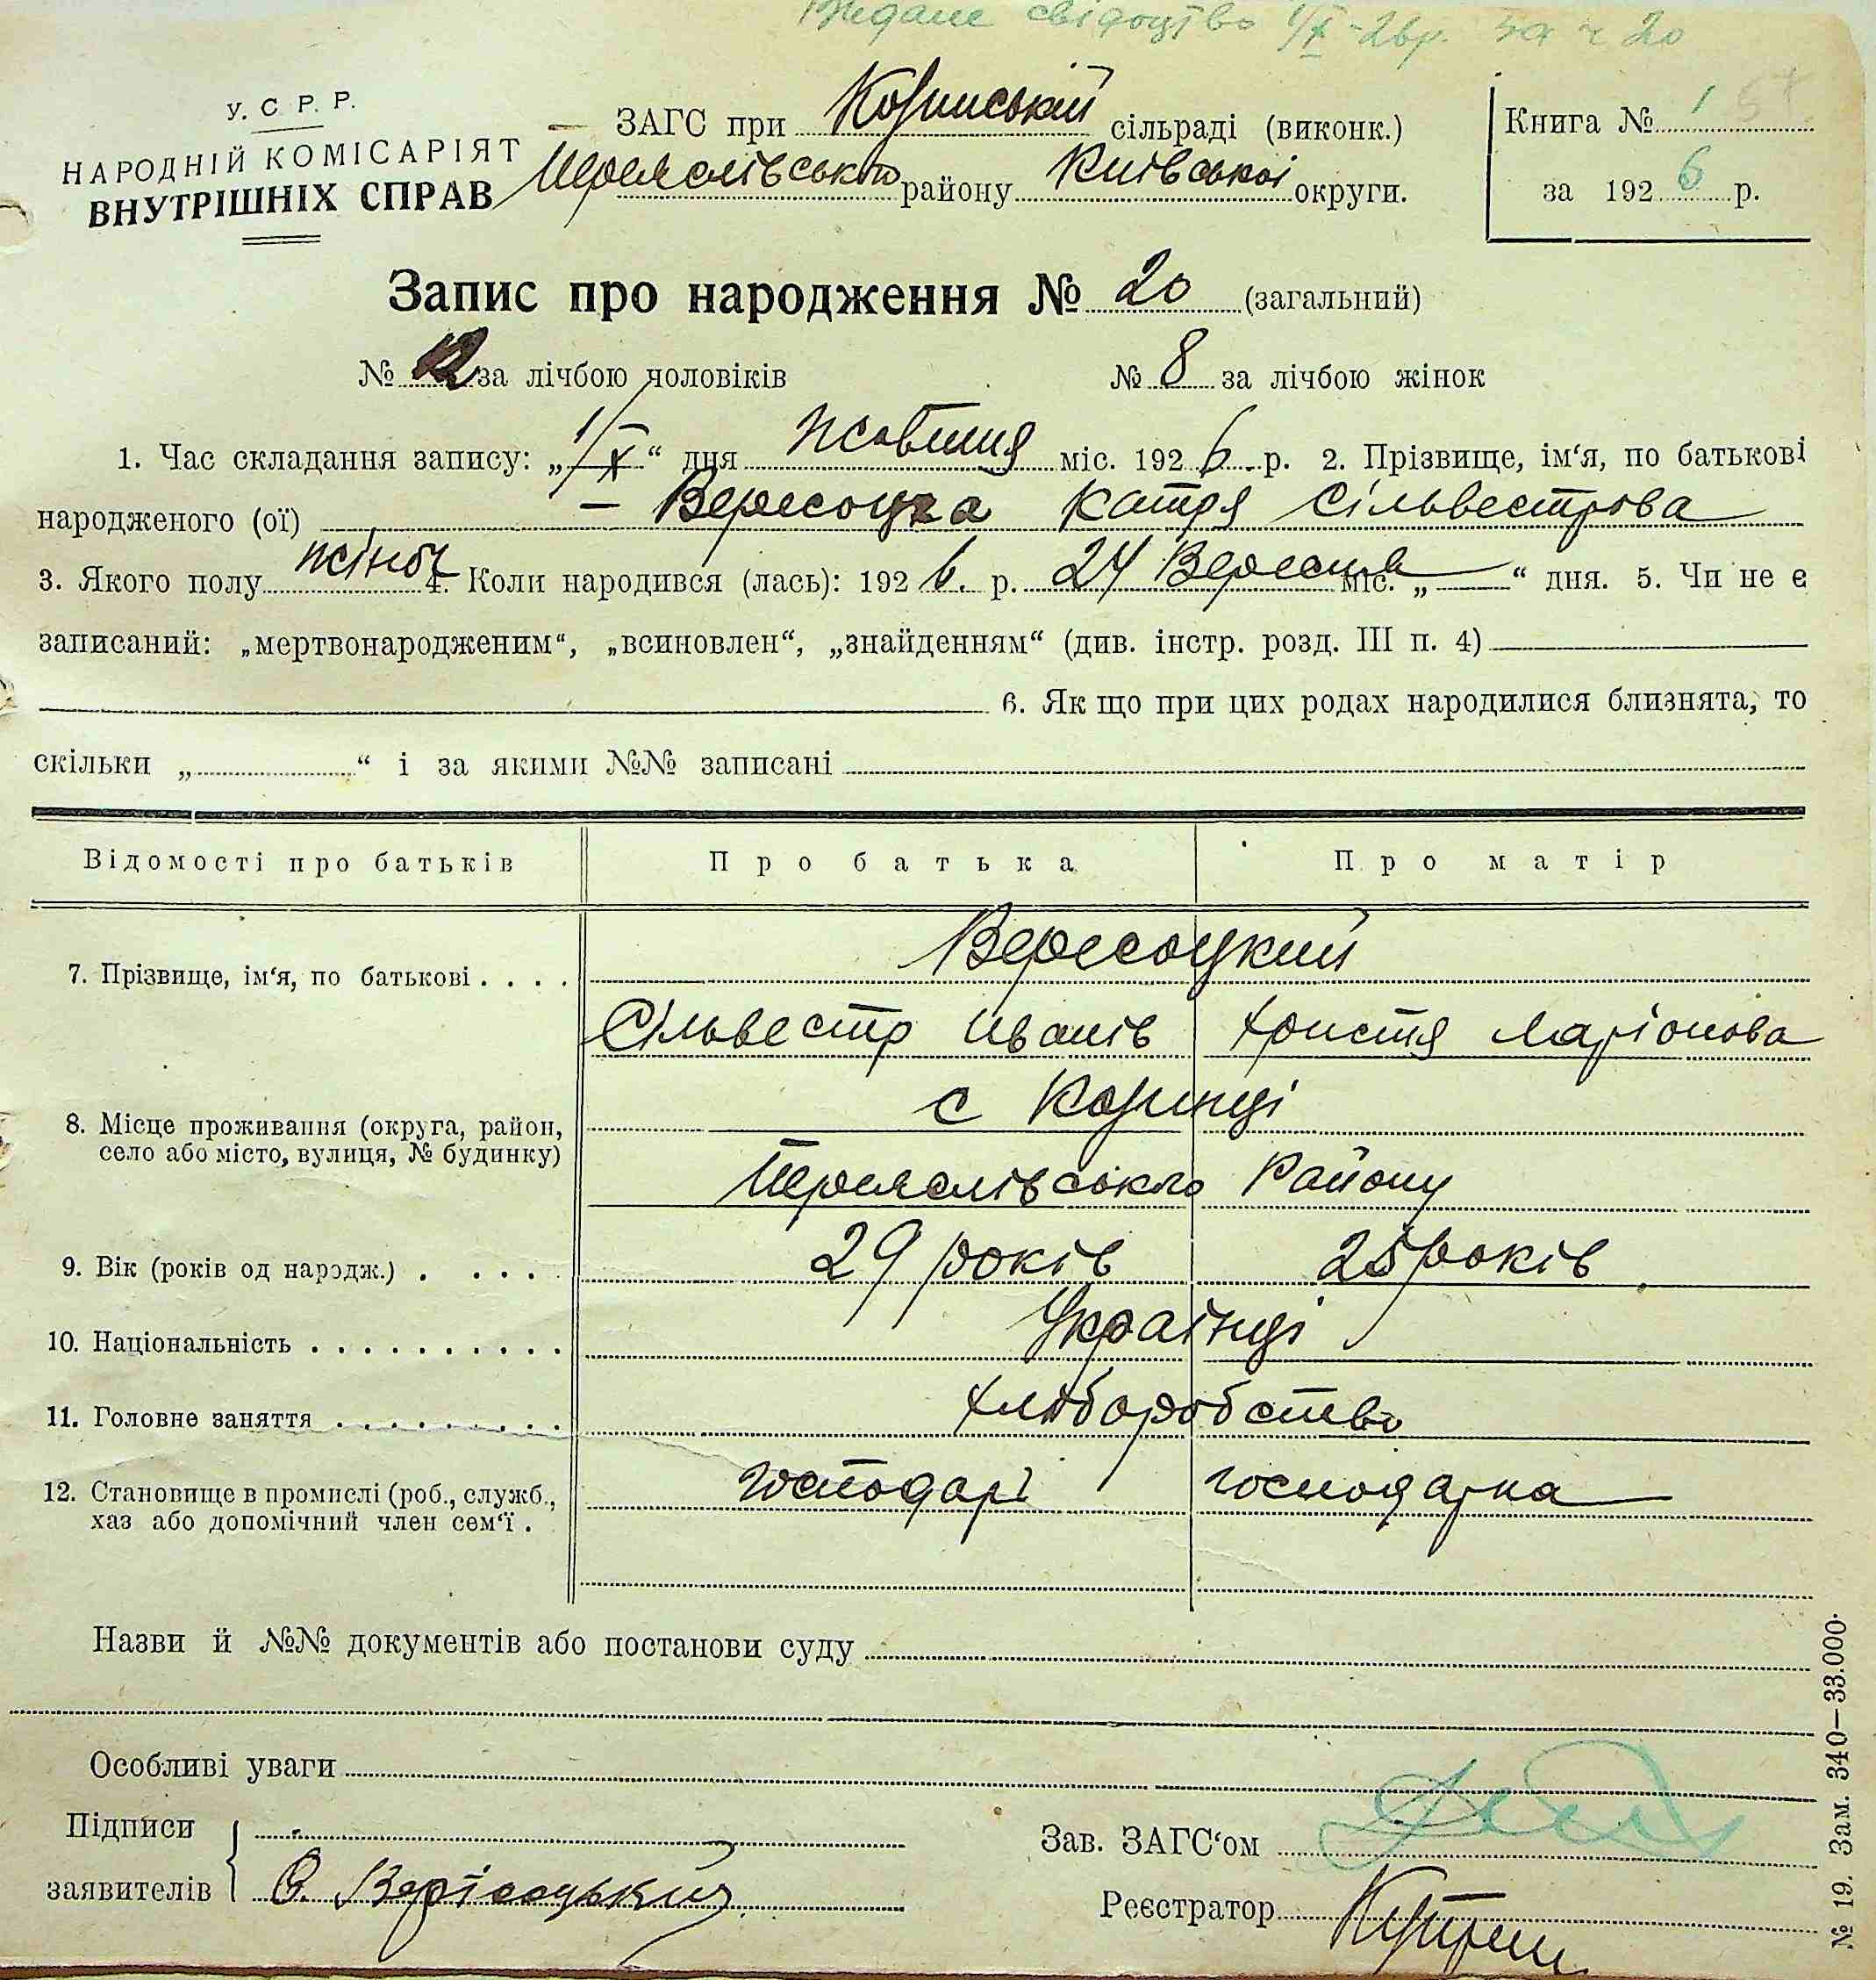 Видане свідоцтво 1/X-26р. за ч 20
У. С. Р. Р.
НАРОДНІЙ КОМІСАРІЯТ
ВНУТРІШНІХ СПРАВ
ЗАГС при сільраді (виконк.)
Переяслівського району Київської округи.
Книга № 1
за 1926 р.
Запис про народження № 20 (загальний)
№ за лічбою чоловіків № 8 за лічбою жінок
1. Час складання запису: „1/X“ дня жовтня міс. 1926 р. 2. Прізвище, ім‘я, по батькові
народженого (ої) – Вересоцка Катря Сільвестрова
3. Якого полу жіноч 4. Коли народився (лась): 1926 р. 24 Вересня міс. „ “ дня. 5. Чи не є
записаний: „мертвонародженим“, „всиновлен“, „знайденням“ (див. інстр. розд. III п. 4)
6. Як що при цих родах народилися близнята, то
скільки „ “ і за якими №№ записані
Відомості про батьків Про батька Про матір
Вересоцкий
7. Прізвище, ім‘я, по батькові
Сільвестр Иванів Христя Ларіонова
8. Місце проживання (округа, район,
село або місто, вулиця, № будинку)
с
Переяслівського Району
9. Вік (років од народж.) 29 років 25 років
10. Національність Українці
11. Головне заняття хліборобство
12. Становище в промислі (роб., служб.,
хаз або допомічний член сем‘ї.
господарі господарка
Назви й №№ документів або постанови суду
Особливі уваги
Підписи
заявителів
С. Верісоцький
Зав. ЗАГС‘ом
Реєстратор
№ 19. Зам. 340—33.000.